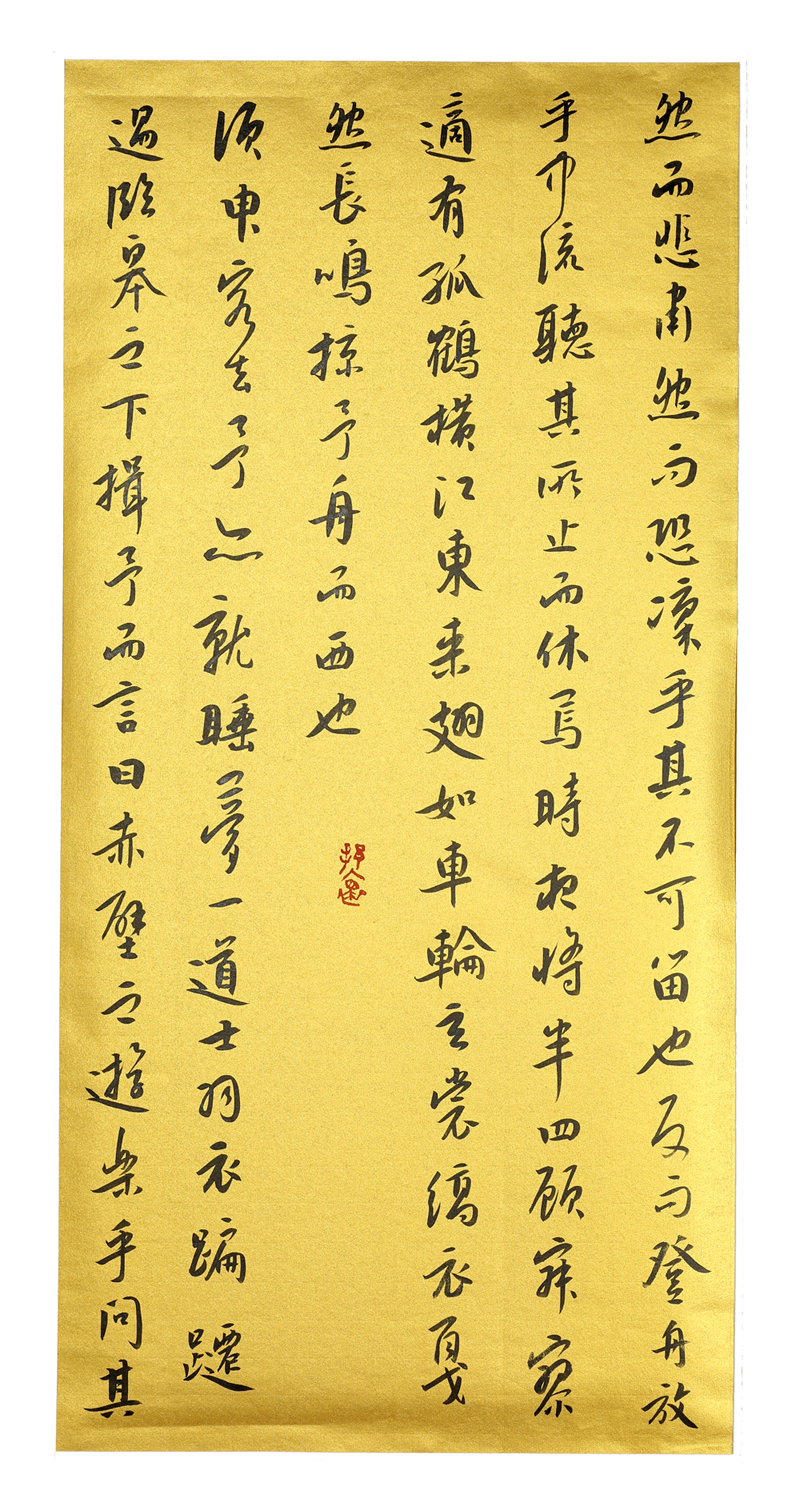 然而悲肅然而恐凜乎其不可留也反而登舟放
乎中流聽其所止而休焉時夜將半四顧寂寥
適有孤鶴橫江東來翅如車輪玄裳縞衣戛
然長鳴掠予舟而西也
須臾客去予亦就睡夢一道士羽衣蹁躚
過臨皋之下揖予而言曰赤壁之遊樂乎問其